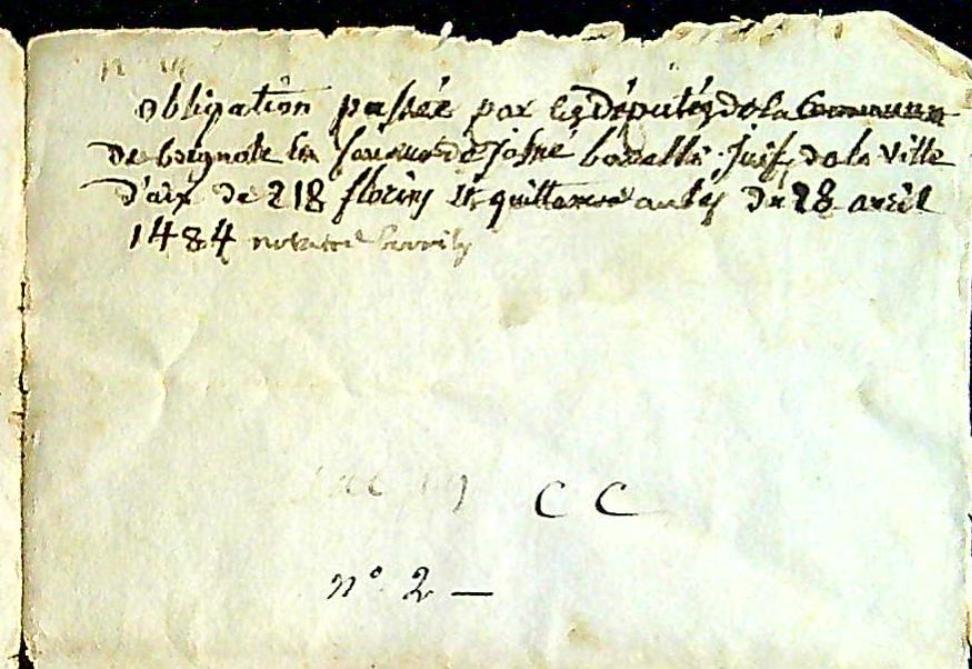 obligation passée par les députés de la Commune
de brignole en faveur de Josué bonella juif de la ville
d'aix de 218 florins et quittance au bas du 28 avril
1484 notaire
CC
n° 2 —